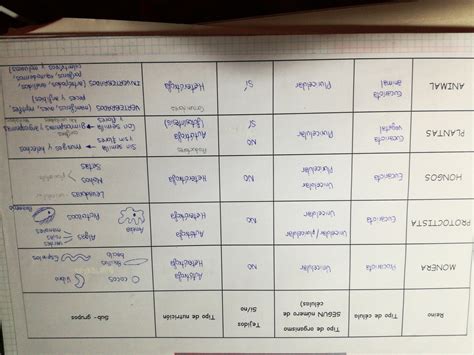 Reino
Tipo de célula
Tipo de organismo
SEGÚN número de
células)
Tejidos
Sí/no
Tipo de nutrición
Sub-grupos
MONERA
Procariota
Unicelular
NO
Autótrofa
Heterótrofa
Cocos
Vibrio
Bacilo
Espirilos
PROTOCTISTA
Eucariota
Unicelular/pluricelular
NO
Autótrofa
Heterótrofa
Algas
verdes
rojas
marrones
Protozoos
Ameba
Paramecio
HONGOS
Eucariota
Unicelular
Pluricelular
NO
Heterótrofa
Levaduras
Mohos
Setas
PLANTAS
Eucariota
vegetal
Pluricelular
NO
SÍ
Productores
Autótrofa
(fotosíntesis)
Sin semilla → musgos y helechos
y sin flores
Con semilla → gimnospermas (angiospermas
y flores
ANIMAL
Eucariota
animal
Pluricelular
SÍ
Heterótrofa
VERTEBRADOS (mamíferos, aves, reptiles,
peces y anfibios)
INVERTEBRADOS (artrópodos, anélidos,
poríferos, equinodermos,
celentéreos y moluscos)